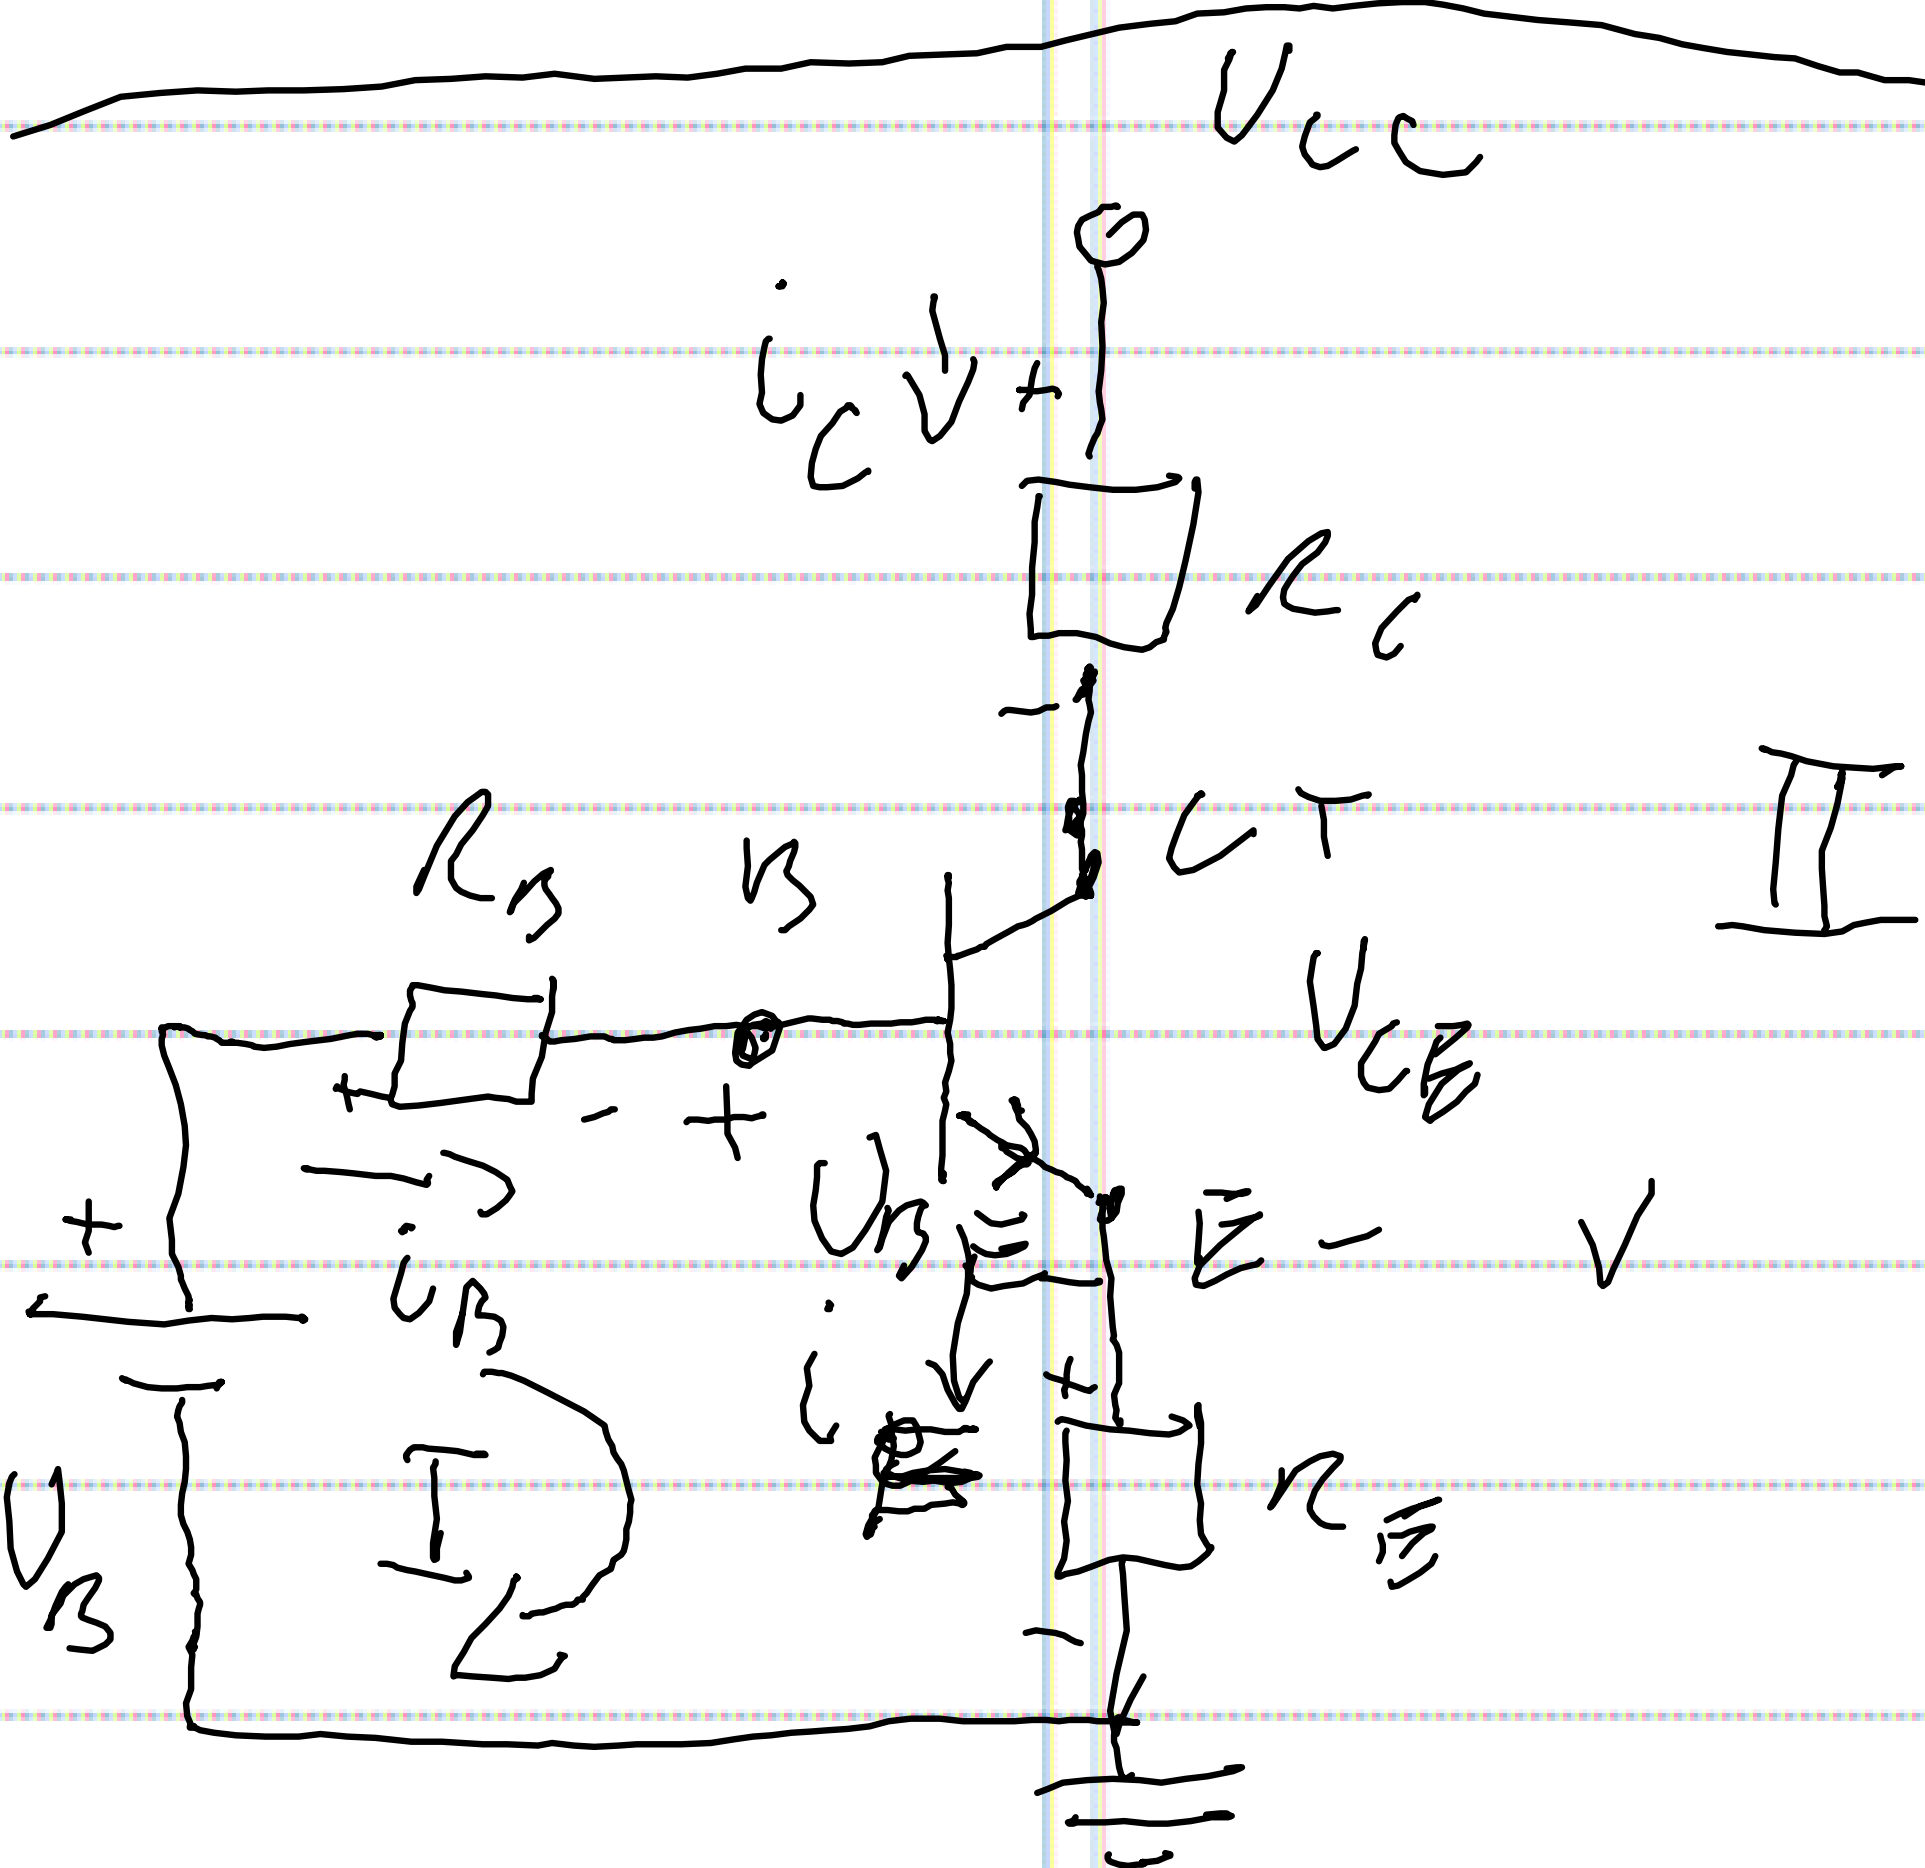 Vcc
ic
+
Rc
-
RB
B
C
+
II
VCE
+
-
+
VBE
E
-
V
iB
iE
+
I
RE
VB
-